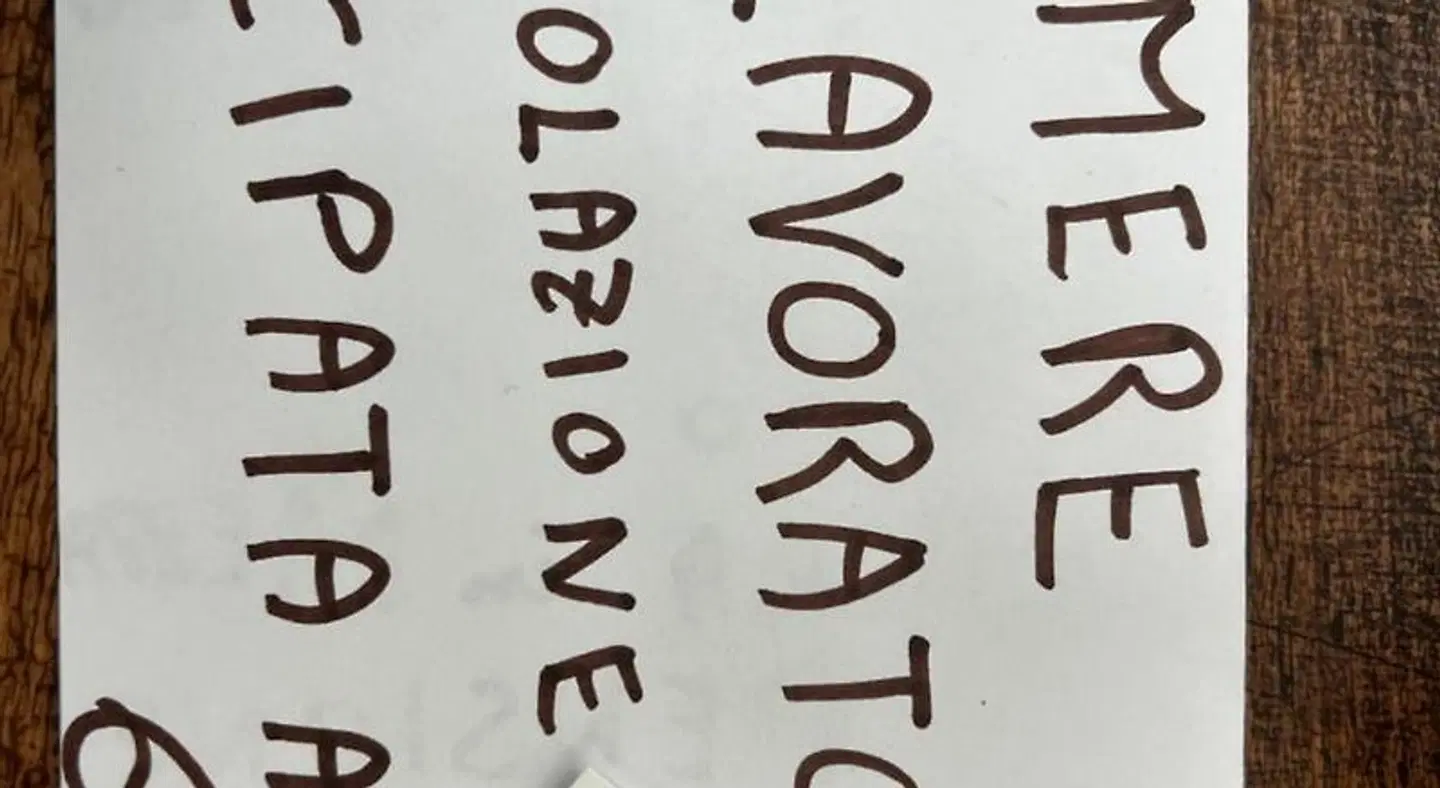 MERE
AVORATO
OLAZIONE
CIPATA A